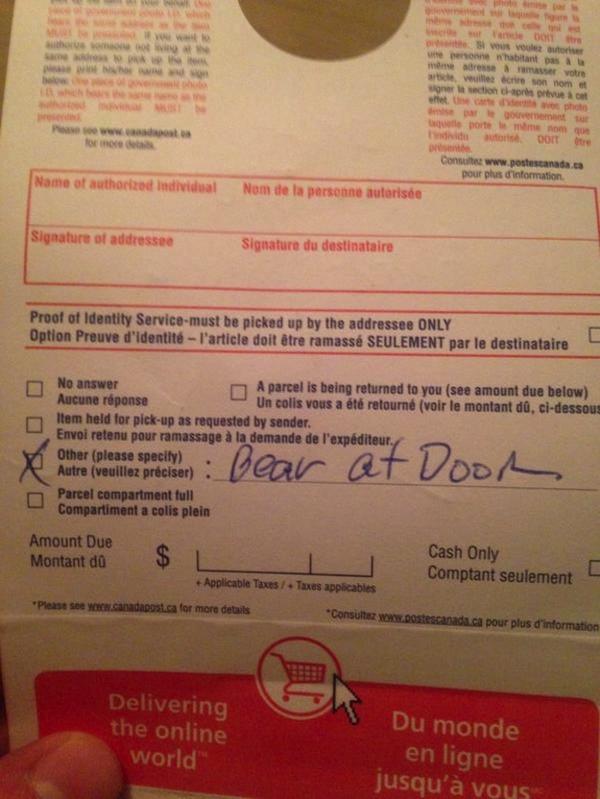 MUST be presented. If you want to
authorize someone not living at the
same address to pick up the item,
please print his/her name and sign
below. One piece of government photo
I.D. which bears the same name as the
authorized individual MUST be
presented.
Please see www.canadapost.ca
for more details.
émise par le
gouvernement sur laquelle figure la
même adresse que celle qui est
inscrite sur l'article DOIT être
présentée. Si vous voulez autoriser
une personne n'habitant pas à la
même adresse à ramasser votre
article, veuillez écrire son nom et
signer la section ci-après prévue à cet
effet. Une carte d'identité avec photo
émise par le gouvernement sur
laquelle porte le même nom que
l'individu autorisé, DOIT être
présentée.
Consultez www.postescanada.ca
pour plus d'information.
Name of authorized individual Nom de la personne autorisée
Signature of addressee Signature du destinataire
Proof of Identity Service-must be picked up by the addressee ONLY
Option Preuve d'identité – l'article doit être ramassé SEULEMENT par le destinataire
No answer
Aucune réponse
A parcel is being returned to you (see amount due below)
Un colis vous a été retourné (voir le montant dû, ci-dessous
Item held for pick-up as requested by sender.
Envoi retenu pour ramassage à la demande de l'expéditeur.
Other (please specify)
Autre (veuillez préciser) : Bear at Door
Parcel compartment full
Compartiment a colis plein
Amount Due
Montant dû
$
+ Applicable Taxes / + Taxes applicables
Cash Only
Comptant seulement
*Please see www.canadapost.ca for more details
*Consultez www.postescanada.ca pour plus d'information
Delivering
the online
world™
Du monde
en ligne
jusqu'à vous